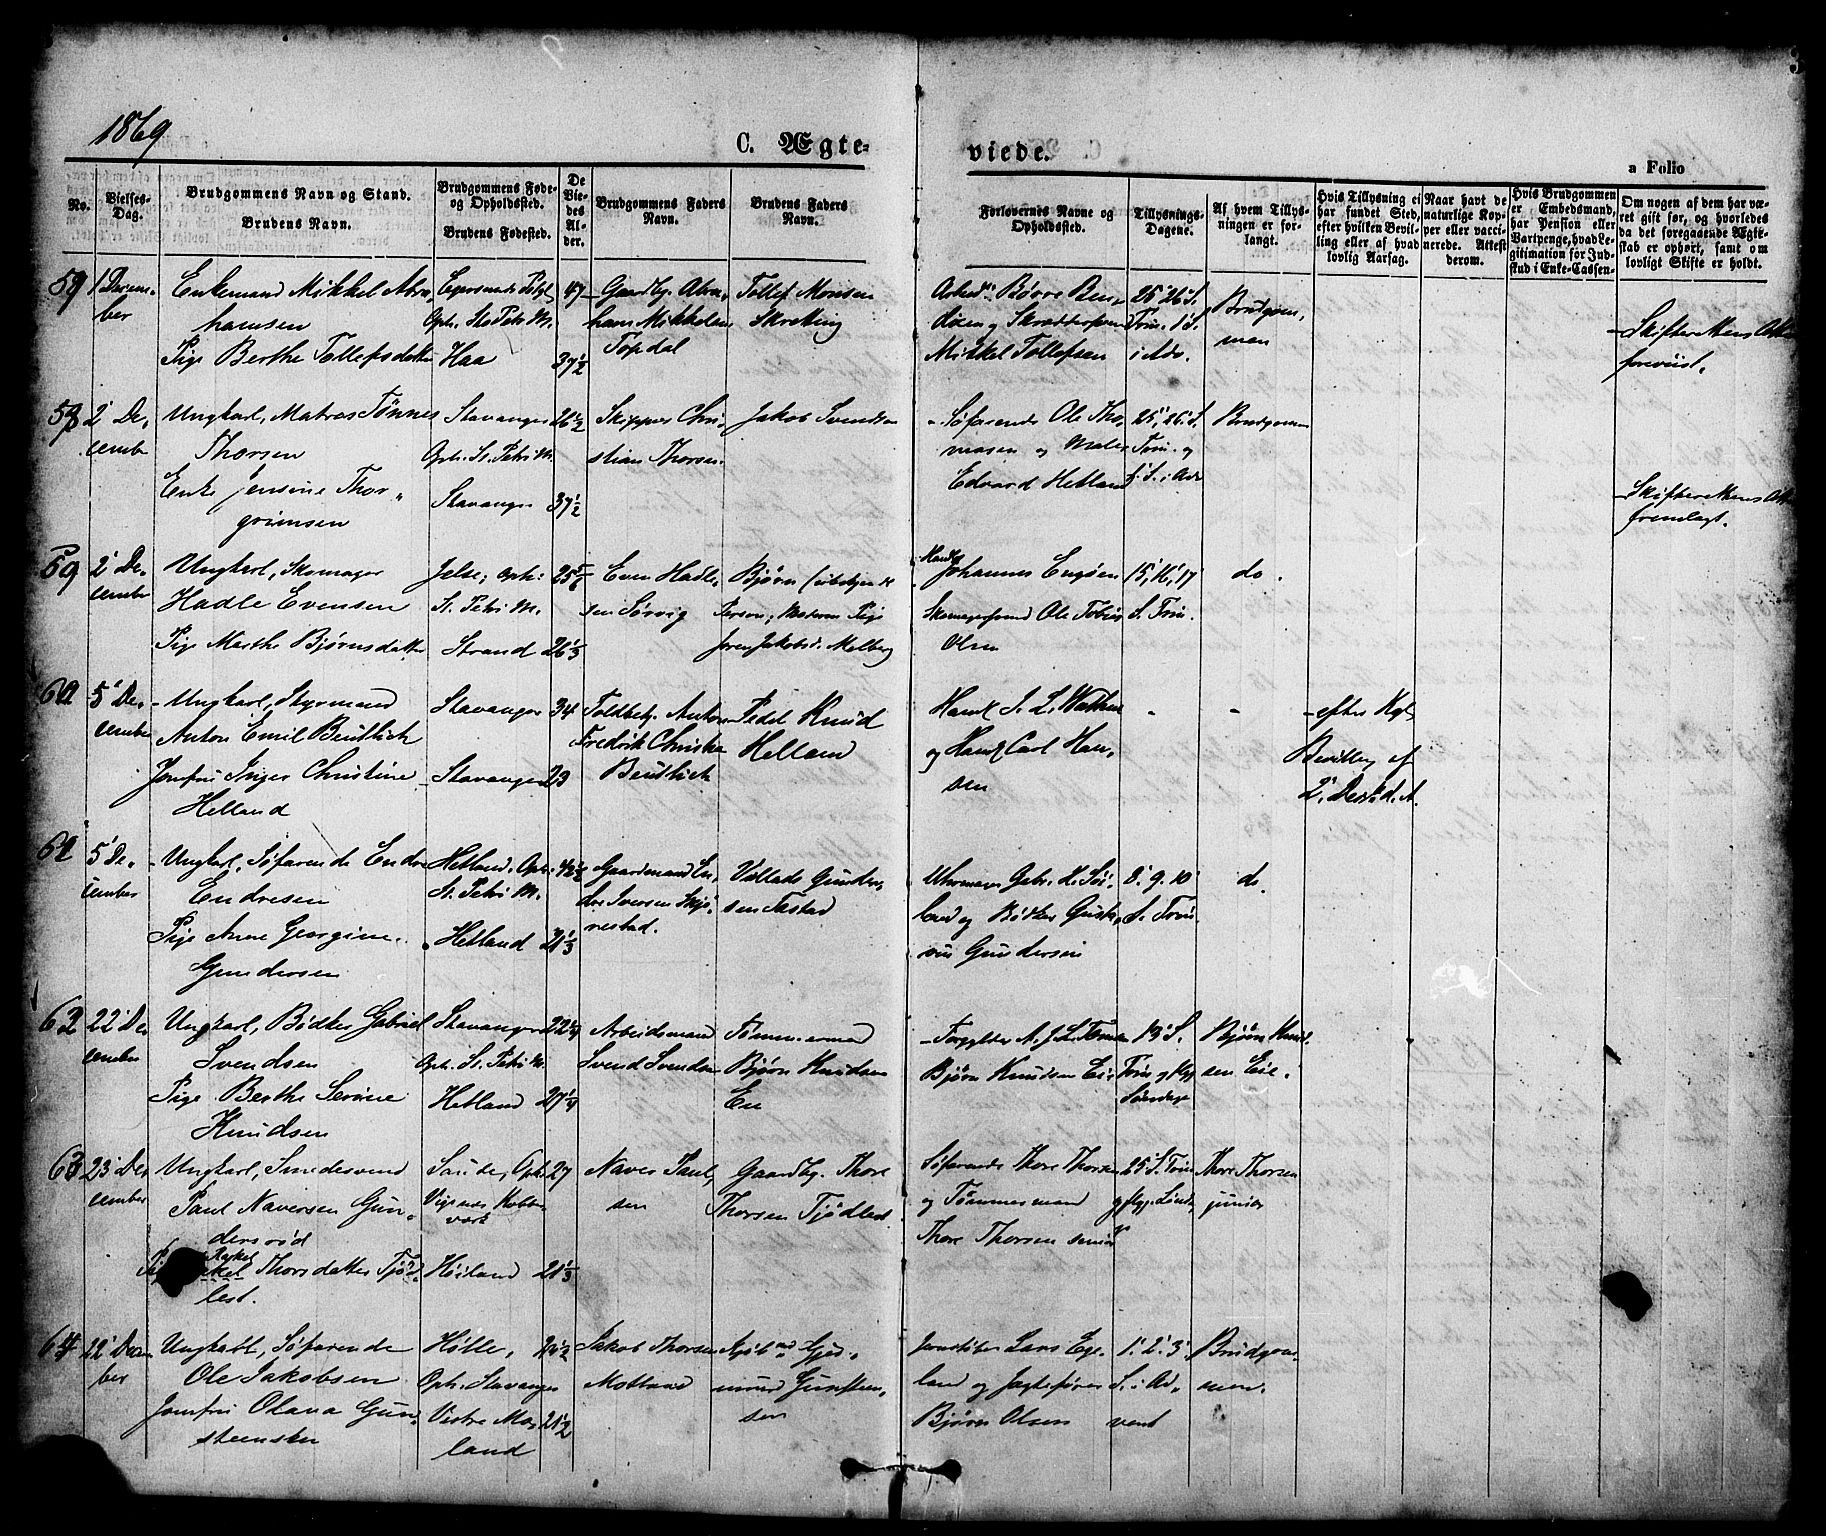 1869
C. Ægte-
viede.
a Folio
No.
Vielses-
Dag.
Brudgommens Navn og Stand.
Brudens Navn.
Brudgommens Føde-
og Opholdssted.
Brudens Fødested.
De
Vie-
des
Al-
der.
Brudgommens Faders
Navn.
Brudens Faders
Navn.
Forlovernes Navne og
Opholdssted.
Tillysnings-
Dagene.
Af hvem Tillys-
ningen er for-
langt.
Hvis Tillysning ei
har fundet Sted,
efter hvilken Bevil-
ling eller af hvad
lovlig Aarsag.
Naar havt de
naturlige Kop-
per eller vacci-
nerede. Attest
derom.
Hvis Brudgommen
er Embedsmand,
har Pension eller
Vartpenge, hvad Le-
gitimation for Ind-
skud i Enke-Cassen.
Om nogen af dem har væ-
ret gift før, og hvorledes
da det foregaaende Ægte-
skab er ophørt, samt om
lovligt Skifte er holdt.
1 Decem-
ber
Enkemand Mikkel Abra-
hamsen
Pige Berthe Tollefsdatter
Oph. St. Petri M.
Haa
47
37½
Gaardbr. Abra-
ham Mikkelsen
Topdal
Tollef Monsen
Skretting
Mikkel Tollefsen
25' 26' S.
Trin. 1' S.
i Adv.
Brudgom-
men
Skifterettens Att.
foreviist.
2' De-
cember
Ungkarl, Matros Tønnes
Thorsen
Enke Jensine Thor-
grimsen
Stavanger
Oph. St. Petri M.
Stavanger
26½
37½
Skipper Chri-
stian Thorsen
Jakob Svendsen
Søfarende Ole Tho-
masen og Maler
Edvard Hetland
25', 26' S.
Trin. og
1' S. i Adv.
Brudgommen
Skifterettens Att.
fremlagt.
59
2' De-
cember
Ungkarl, Skomager
Hadle Evensen
Pige Marthe Bjørnsdatter
Jelse, Oph:
St. Petri M.
Strand
Even Hadle-
sen Sørvig
Bjørn (ubekjendt
Person, Moderen Pige
Jakobsd. Melberg
Johannes Engøen
Skomagersvend Ole Tobias
Olsen
15, 16, 17
S. Trin.
do.
5' De-
cember
Ungkarl, Styrmand
Anton Emil Beutlich
Jomfru Inger Christine
Helland
Stavanger
Stavanger
34
23
Toldbetj. Anton
Fredrik Christian
Beutlich
Pedel Knud
Helland
og Carl Han-
sen
- efter Kgl
Bevilling af
2' Decbr d. A.
5' De-
cember
Ungkarl, Søfarende Endre
Endresen
Pige Anne Georgine
Gundersen
Hetland, Oph:
St. Petri M.
Hetland
21⅓
Gaardmand En-
dre Iversen Skjø-
restad.
Gunder-
sen Tastad
og Bødker Gust-
Gundersen
8' 9' 10'
S. Trin.
do.
62
22' De-
cember
Ungkarl, Bødker Gabriel
Svendsen
Pige Berthe Serine
Knudsen
Stavanger
Oph. St. Petri M.
Hetland
22¼
27¼
Arbeidsmand
Svend Svendsen
Tømmermand
Bjørn Knudsen
Bjørn Knudsen Eie
Trin og flg
Søndage
Bjørn Knud-
sen Eie.
63
23' De-
cember
Ungkarl, Smedesvend
Paul Naversen Gun-
dersrød
Thorsdatter Tjød-
lest.
Sande, Oph.
Vigsnæs Kobber-
værk
Høiland
27
21⅓
Naver Paul-
sen
Gaardbr. Thore
Thorsen Tjødlest
Søfarende Thore Thorsen
og Tømmermand
Thore Thorsen senior
25' S. Trin
Thore Thorsen
junior
64
22' Decem-
ber
Ungkarl, Søfarende
Ole Jakobsen
Jomfru Olava Gun-
Høle,
Oph. Stavanger
Vestre Mo-
land
21½
Jakob Thorsen
Motland
mund Gunsteen-
sen
Lars Ege-
land og Jagtefører
Bjørn Olsen
1' 2' 3'
S. i Ad-
vent
Brudgom-
men.